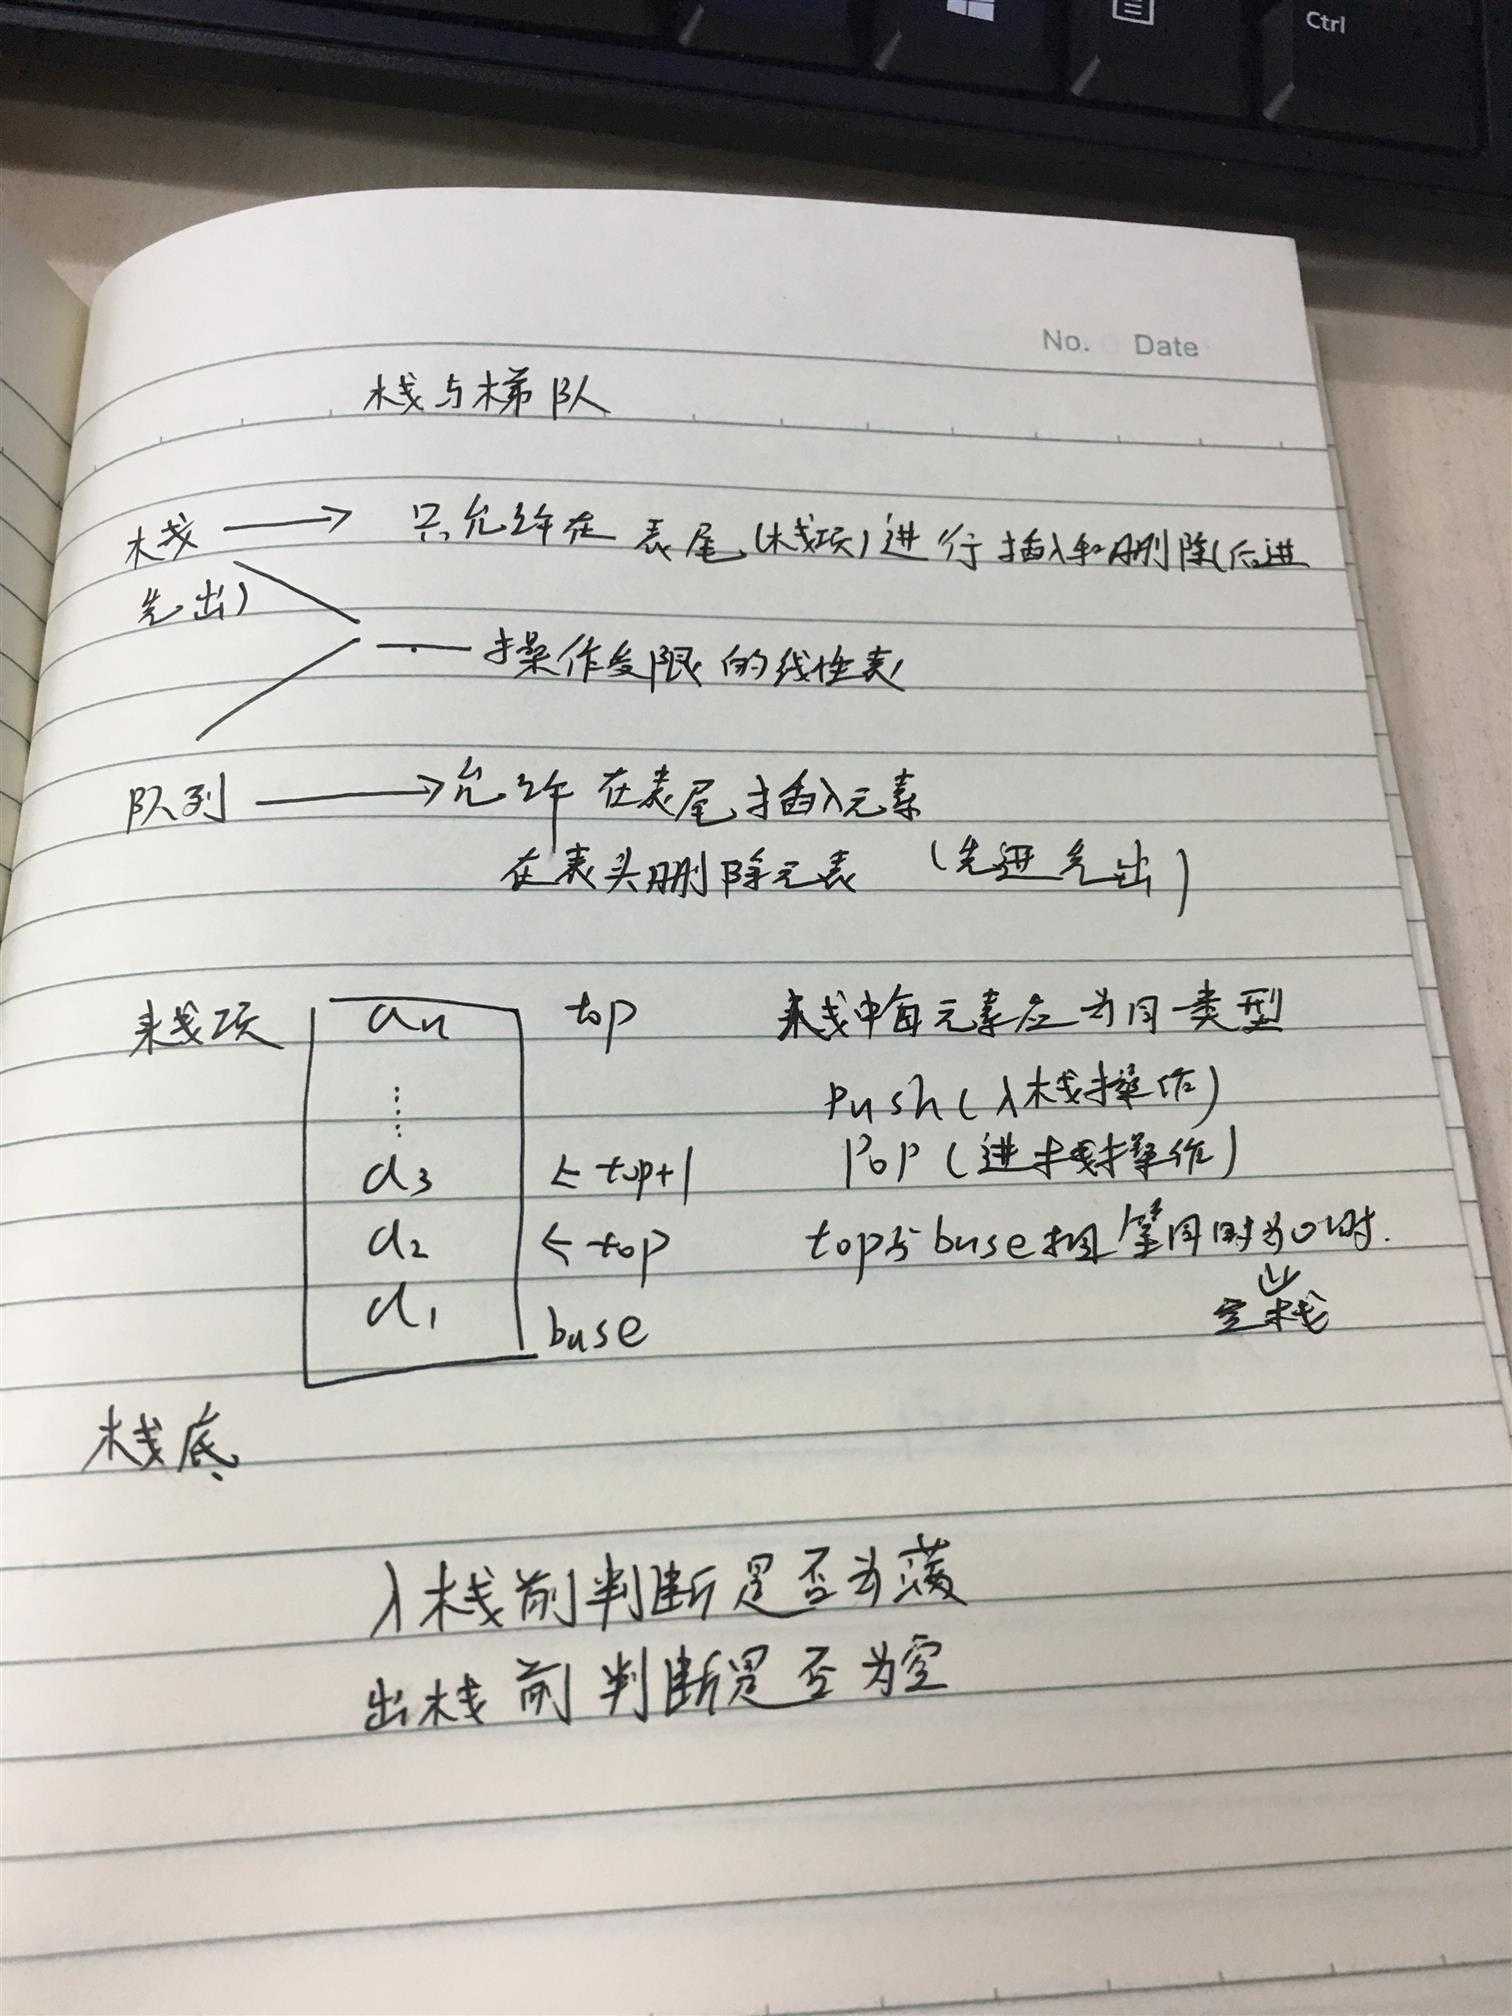 Ctrl
No. Date
栈与梯队
栈 → 只允许在表尾(栈项)进行插入和删除(后进
先出)
操作受限的线性表
队列 → 允许在表尾插入元素
在表头删除元表 (先进先出)
栈项 an top 栈中每元素应为同类型
⋮ Push(入栈操作)
a3 ← top+1 POP(进栈操作)
a2 ← top top与buse相等同时为0时.
a1 buse 空栈
栈底
入栈前判断是否为满
出栈前判断是否为空